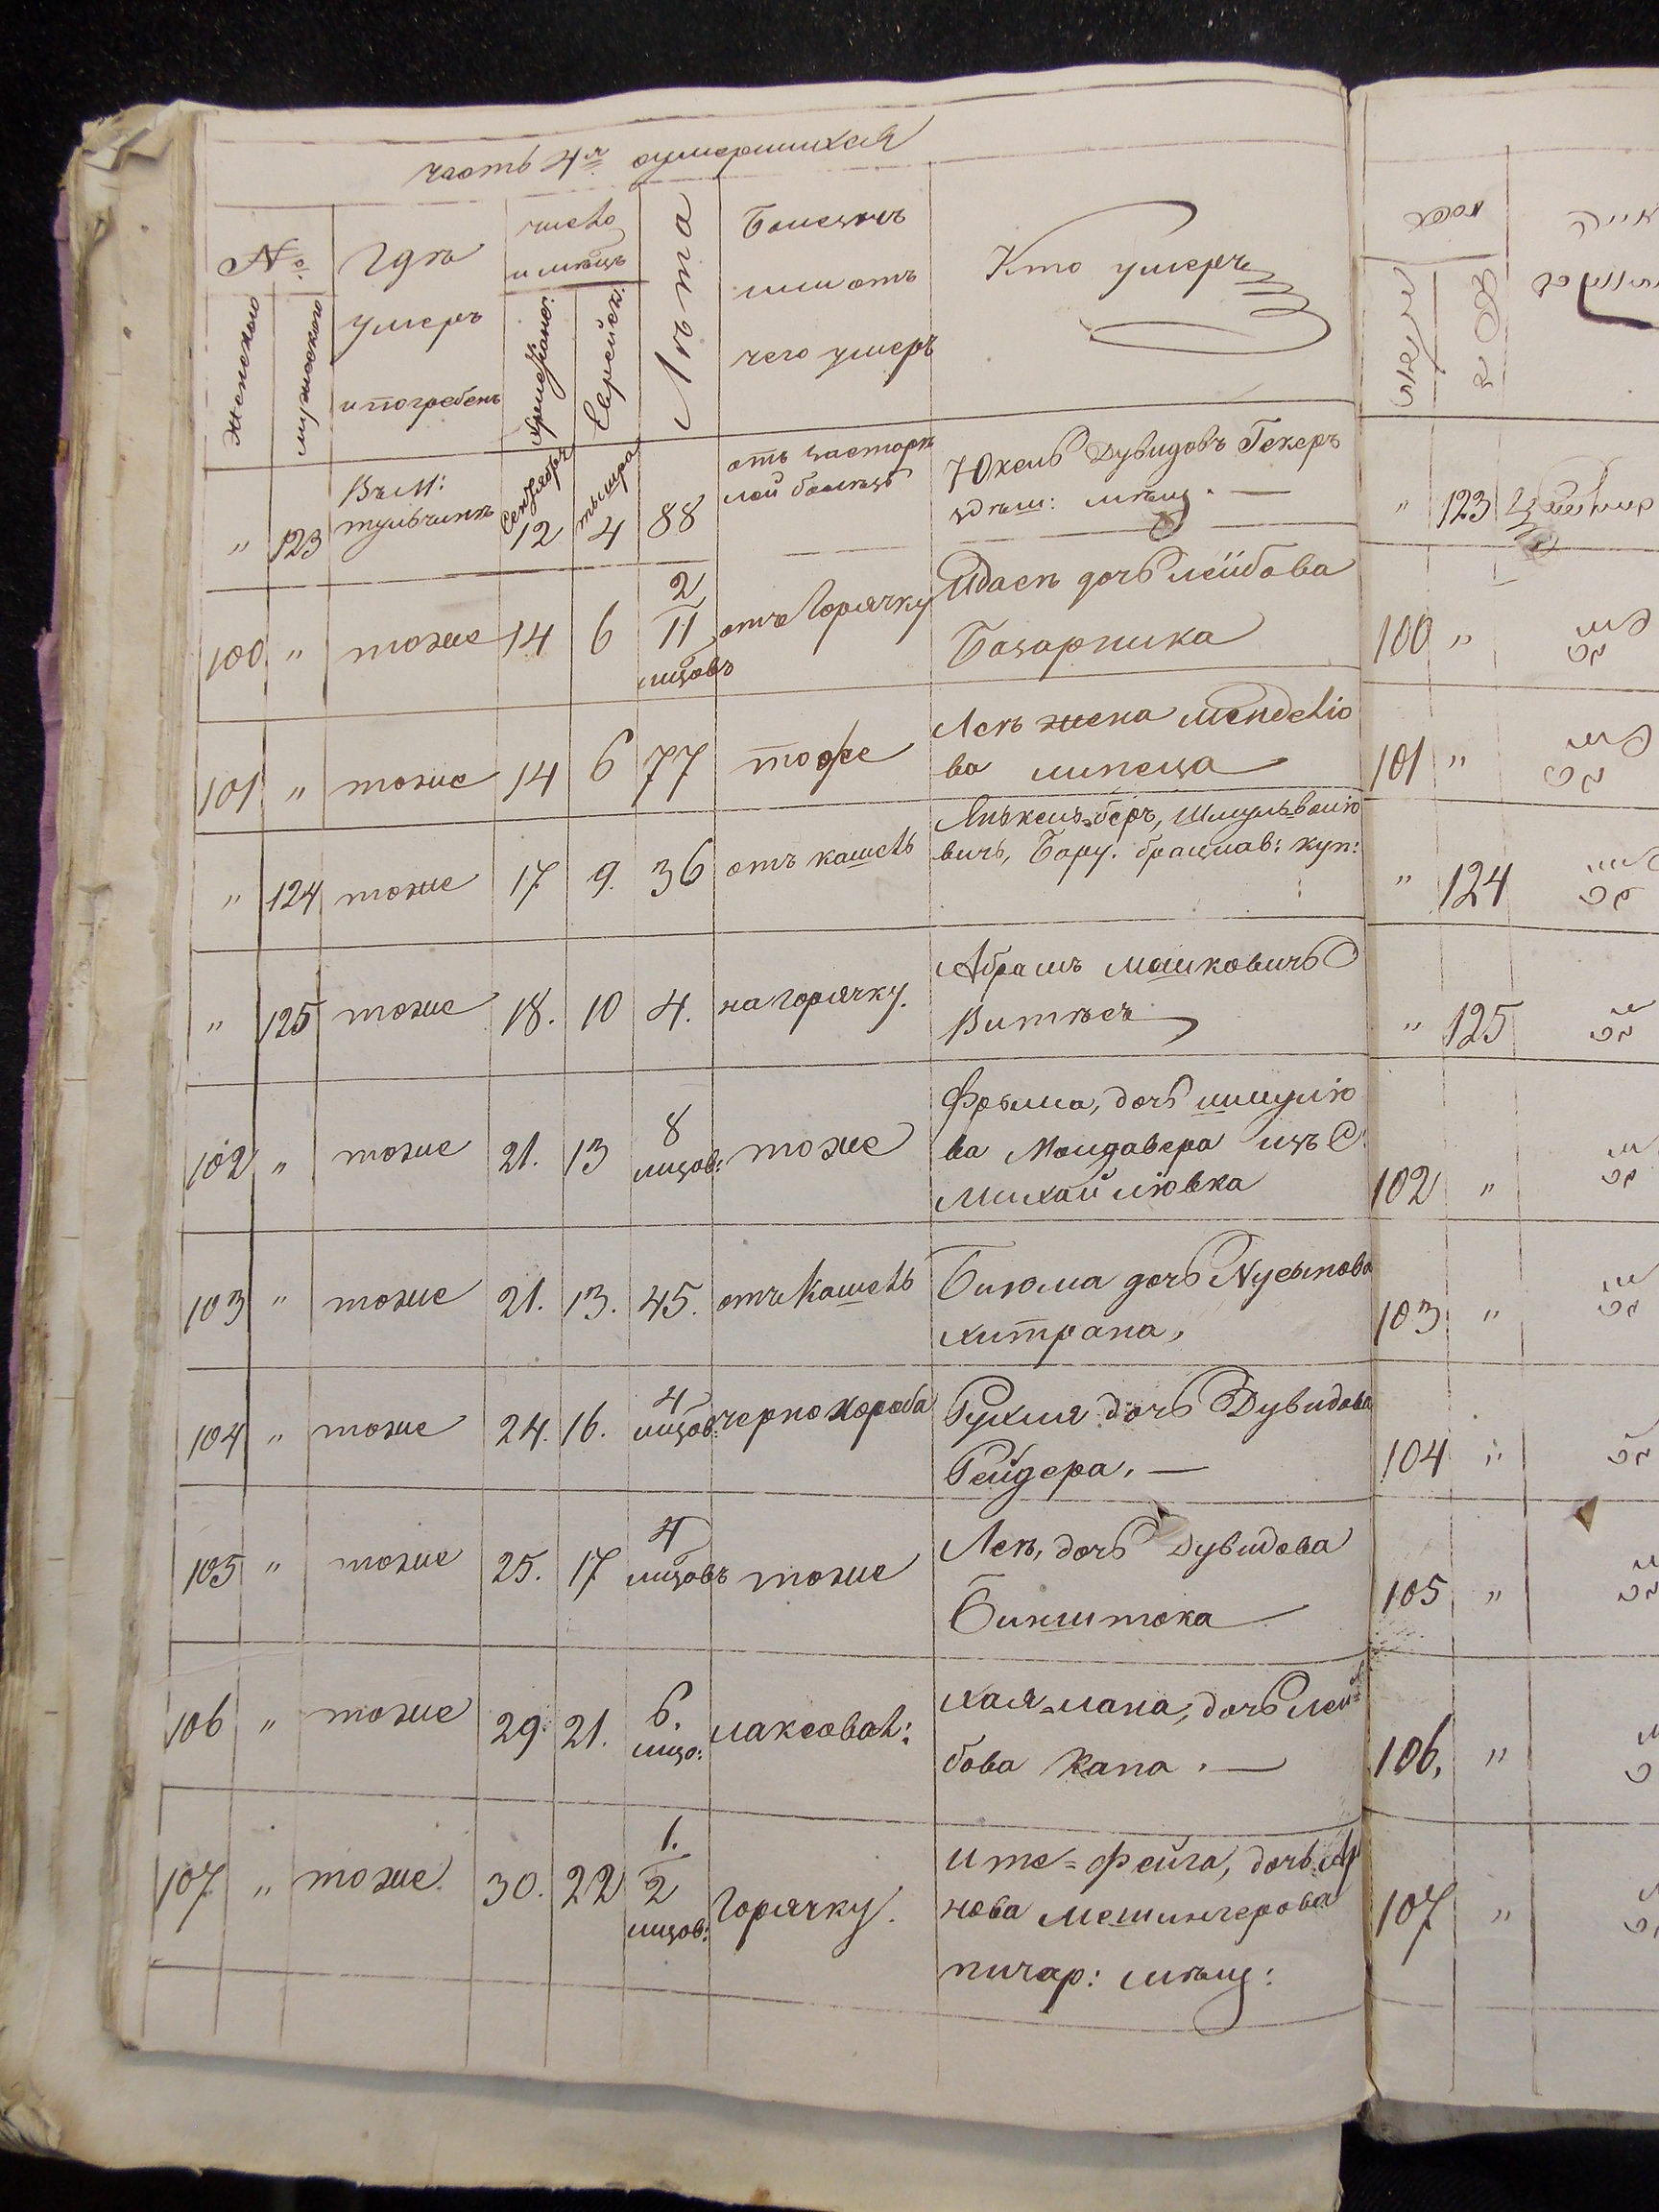 часть 4я оумершихся
№
женского
мужеского
Гдѣ
умеръ
и погребенъ
число
и мѣцъ
Христiанс:
Еврейск:
Лѣта
Болезнь
или отъ
чего умеръ
Кто умеръ
" 123 Въ М: Сентября тышра отъ застарѣ Юкель Дувидовъ Гекеръ
тульчинѣ 12 4 88 лой болѣзь здѣш: мѣщ. —
100 " тоже 14 6 2/11 мцовъ отъ Горячку Идасѣ дочь лейбова
Базарника
101 " тоже 14 6 77 тоже Леѣ жена Менделiо
ва липеца
" 124 тоже 17 9. 36 отъ кашель Янькель=беръ, Шмульволiо
вичъ, Бару. брацлав: куп:
" 125 тоже 18. 10 4. на горячку. Абрамъ мошковичь
Витѣсъ
102 " тоже 21. 13 8 мцов: тоже Фрыма, дочь шмулiо
ва Молдавера изъ С.
Михайлiовка
103 " тоже 21. 13. 45. отъ Кашель Бизюма дочь Нусынова
хитрана,
104 " тоже 24. 16. 4 мцов: чернохороба Рухля дочь Дувидова
Рейдера. —
105 " тоже 25. 17 4 мцовъ тоже Леѣ, дочь Дувидова
Бинштока
106 " тоже 29. 21. 6. мцо: лаксовал: хая=лана, дочь Лей
бова Кана. —
107 " тоже 30. 22 1./2 мцов: Горячку. ите=фейга, дочь Ар
нова мешингерова
пичар: мѣщ:
" 123
100 "
101 "
" 124
" 125
102 "
103 "
104 "
105 "
106, "
107 "